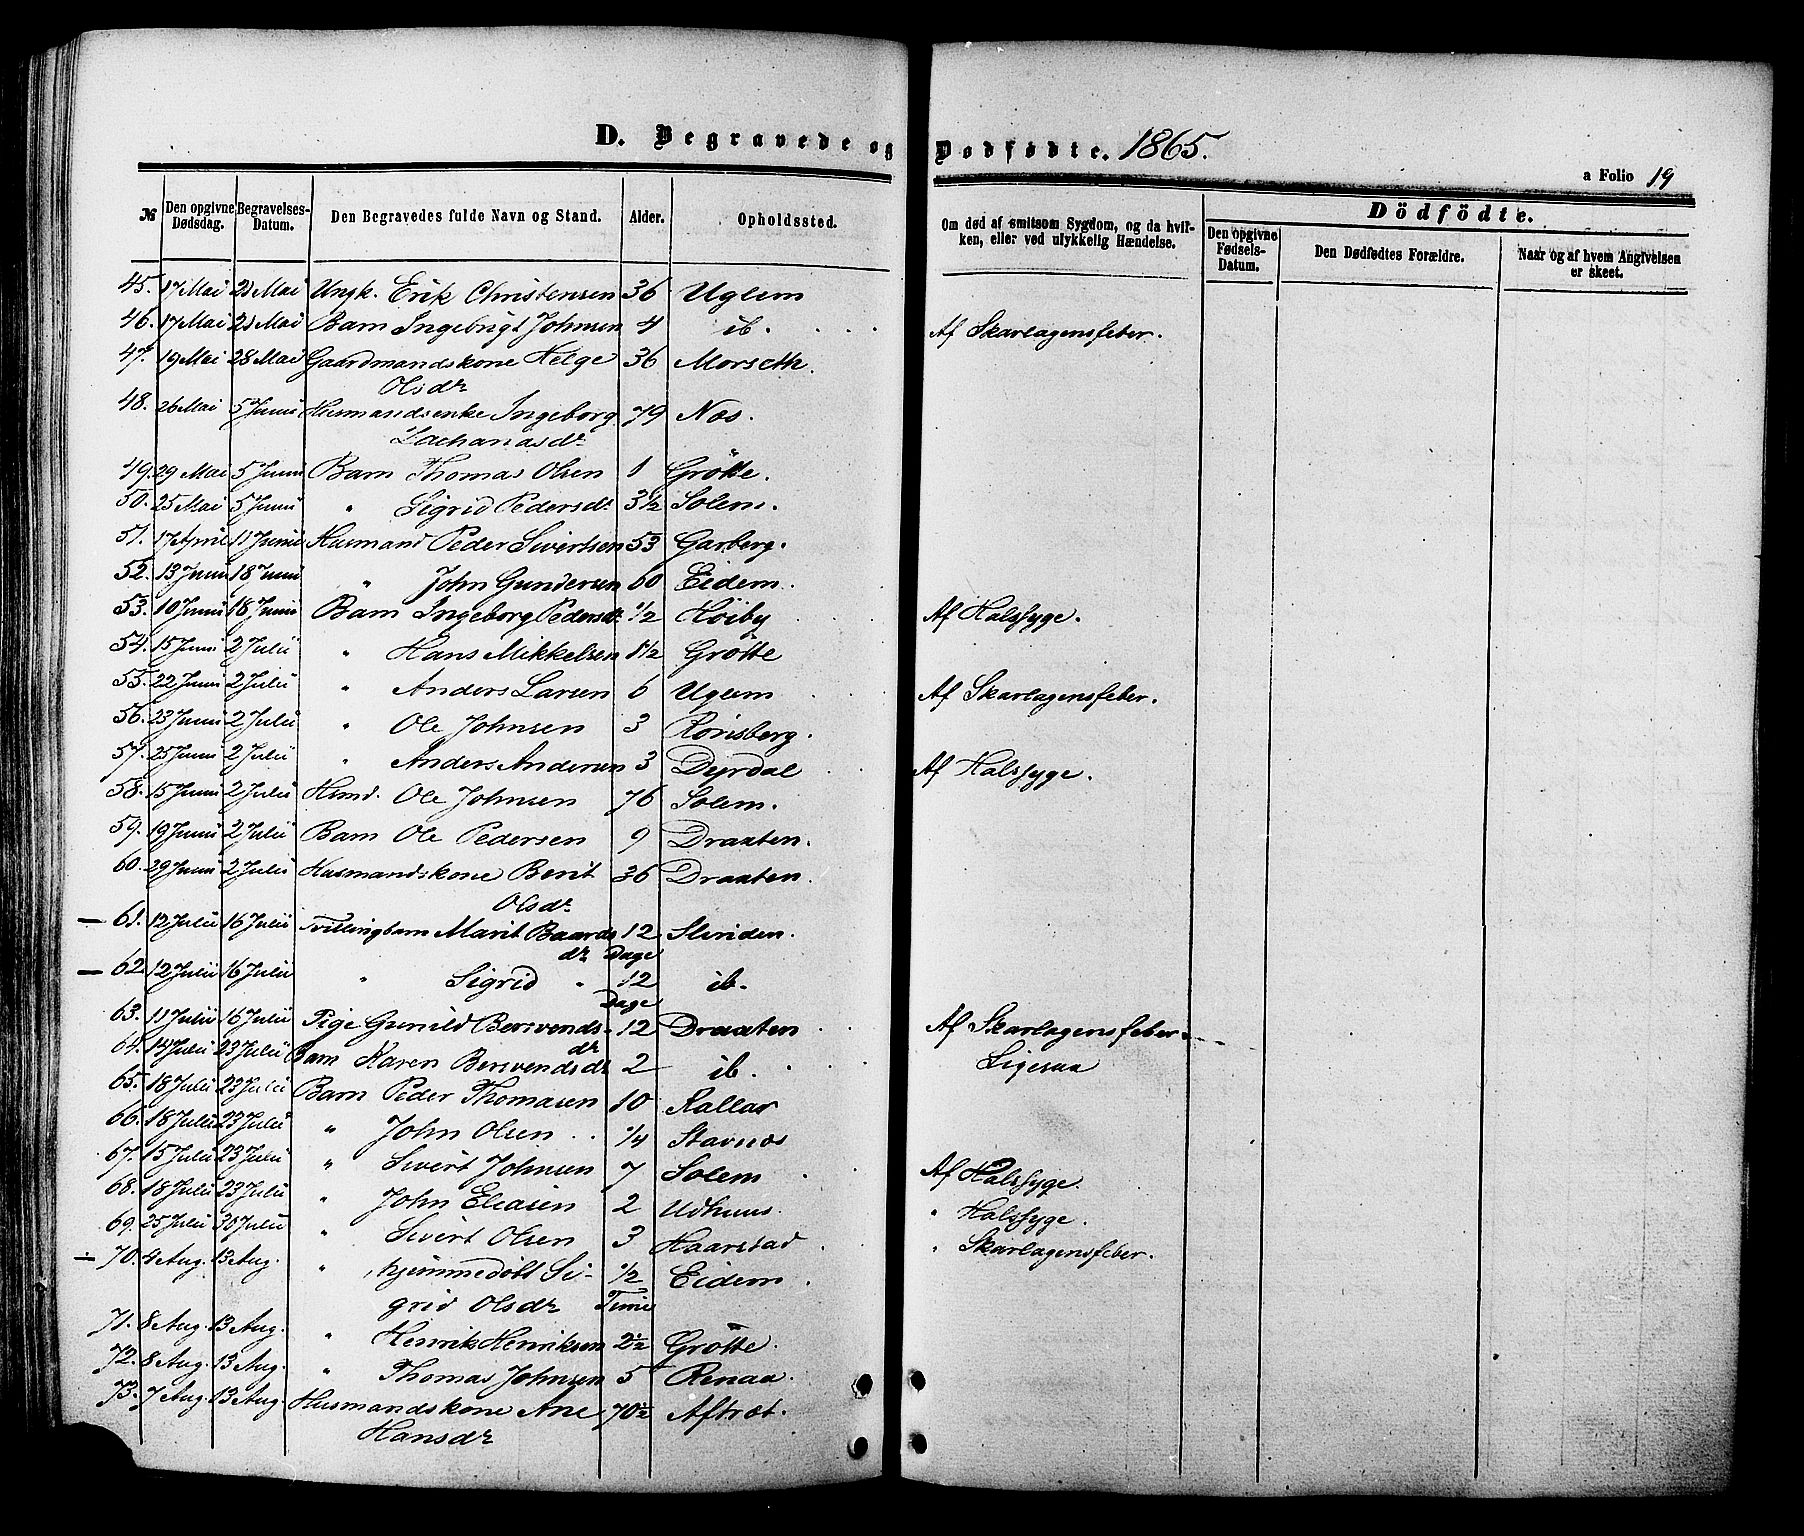 D. Begravede og Dödfödte. 1865.
a Folio 19
№ Den opgivne Dødsdag. Begravelses-Datum. Den Begravedes fulde Navn og Stand. Alder. Opholdssted. Om død af smitsom Sygdom, og da hvilken, eller ved ulykkelig Hændelse. Dödfödte.
Den opgivne Fødsels-Datum. Den Dødfødtes Forældre. Naar og af hvem Angivelsen er skeet.
45. 17 Mai 21 Mai Ungk. Erik Christensen 36 Uglem
46. 17 Mai 21 Mai Barn Ingebrigt Johnsen 4 ib. Af Skarlagensfeber.
47. 19 Mai 28 Mai Gaardmandskone Helge 36 Morseth.
Olsdr
48. 26 Mai 5 Juni Husmandsenke Ingeborg 79 Næs.
Zachariasdr
49. 29 Mai 5 Juni Barn Thomas Olsen 1 Grötte.
50. 25 Mai 5 Juni " Sigrid Pedersdr 3 1/2 Solem.
51. 17 April 11 Junii Husmand Peder Sivertsen 53 Garberg.
52. 13 Juni 18 Juni " John Gundersen 60 Eidem.
53. 10 Juni 18 Juni Barn Ingeborg Pedersdr 1/2 Höiby Af Halssyge.
54. 15 Juni 2 Julii " Hans Mikkelsen 1 1/2 Grötte
55. 22 Juni 2 Julii " Anders Larsen 6 Uglem Af Skarlagensfeber.
56. 23 Juni 2 Julii " Ole Johnsen 3 Rönsberg.
57. 25 Juni 2 Julii " Anders Andersen 3 Dyrdal Af Halssyge.
58. 15 Juni 2 Julii Husmd. Ole Johnsen 76 Solem.
59. 19 Juni 2 Julii Barn Ole Pedersen 9 Draxten.
60. 29 Juni 2 Julii Husmandskone Berit 36 Draxten.
Olsdr
— 61. 12 Julii 16 Julii Tvillingbarn Marit Baards 12 Slinden.
dr Dage
— 62. 12 Julii 16 Julii " Sigrid " 12 ib.
Dage
63. 11 Julii 16 Julii Pige Gunild Bersvends- 12 Draxten Af Skarlagensfeber.
dr
64. 14 Julii 23 Julii Barn Karen Bersvendsdr 2 ib. Ligesaa
65. 18 Julii 23 Julii Barn Peder Thomasen 10 Rallar
66. 18 Julii 23 Julii " John Olsen 1/4 Stavnæs
67. 15 Julii 23 Julii " Sivert Johnsen 7 Solem Af Halssyge.
68. 18 Julii 23 Julii " John Eleasen 2 Udhuus. " Halssyge.
69. 25 Julii 30 Julii " Sivert Olsen 3 Haarstad " Skarlagensfeber.
70. 4 Aug. 13 Aug. " hjemmedöbt Si- 1/2 Eidem
grid Olsdr Time
71. 8 Aug. 13 Aug. " Henrik Henriksen 2 1/2 Grötte.
72. 8 Aug. 13 Aug. " Thomas Johnsen 5 Renaa.
73. 7 Aug. 13 Aug. Husmandskone Ane 70 1/2 Aftræt.
Hansdr